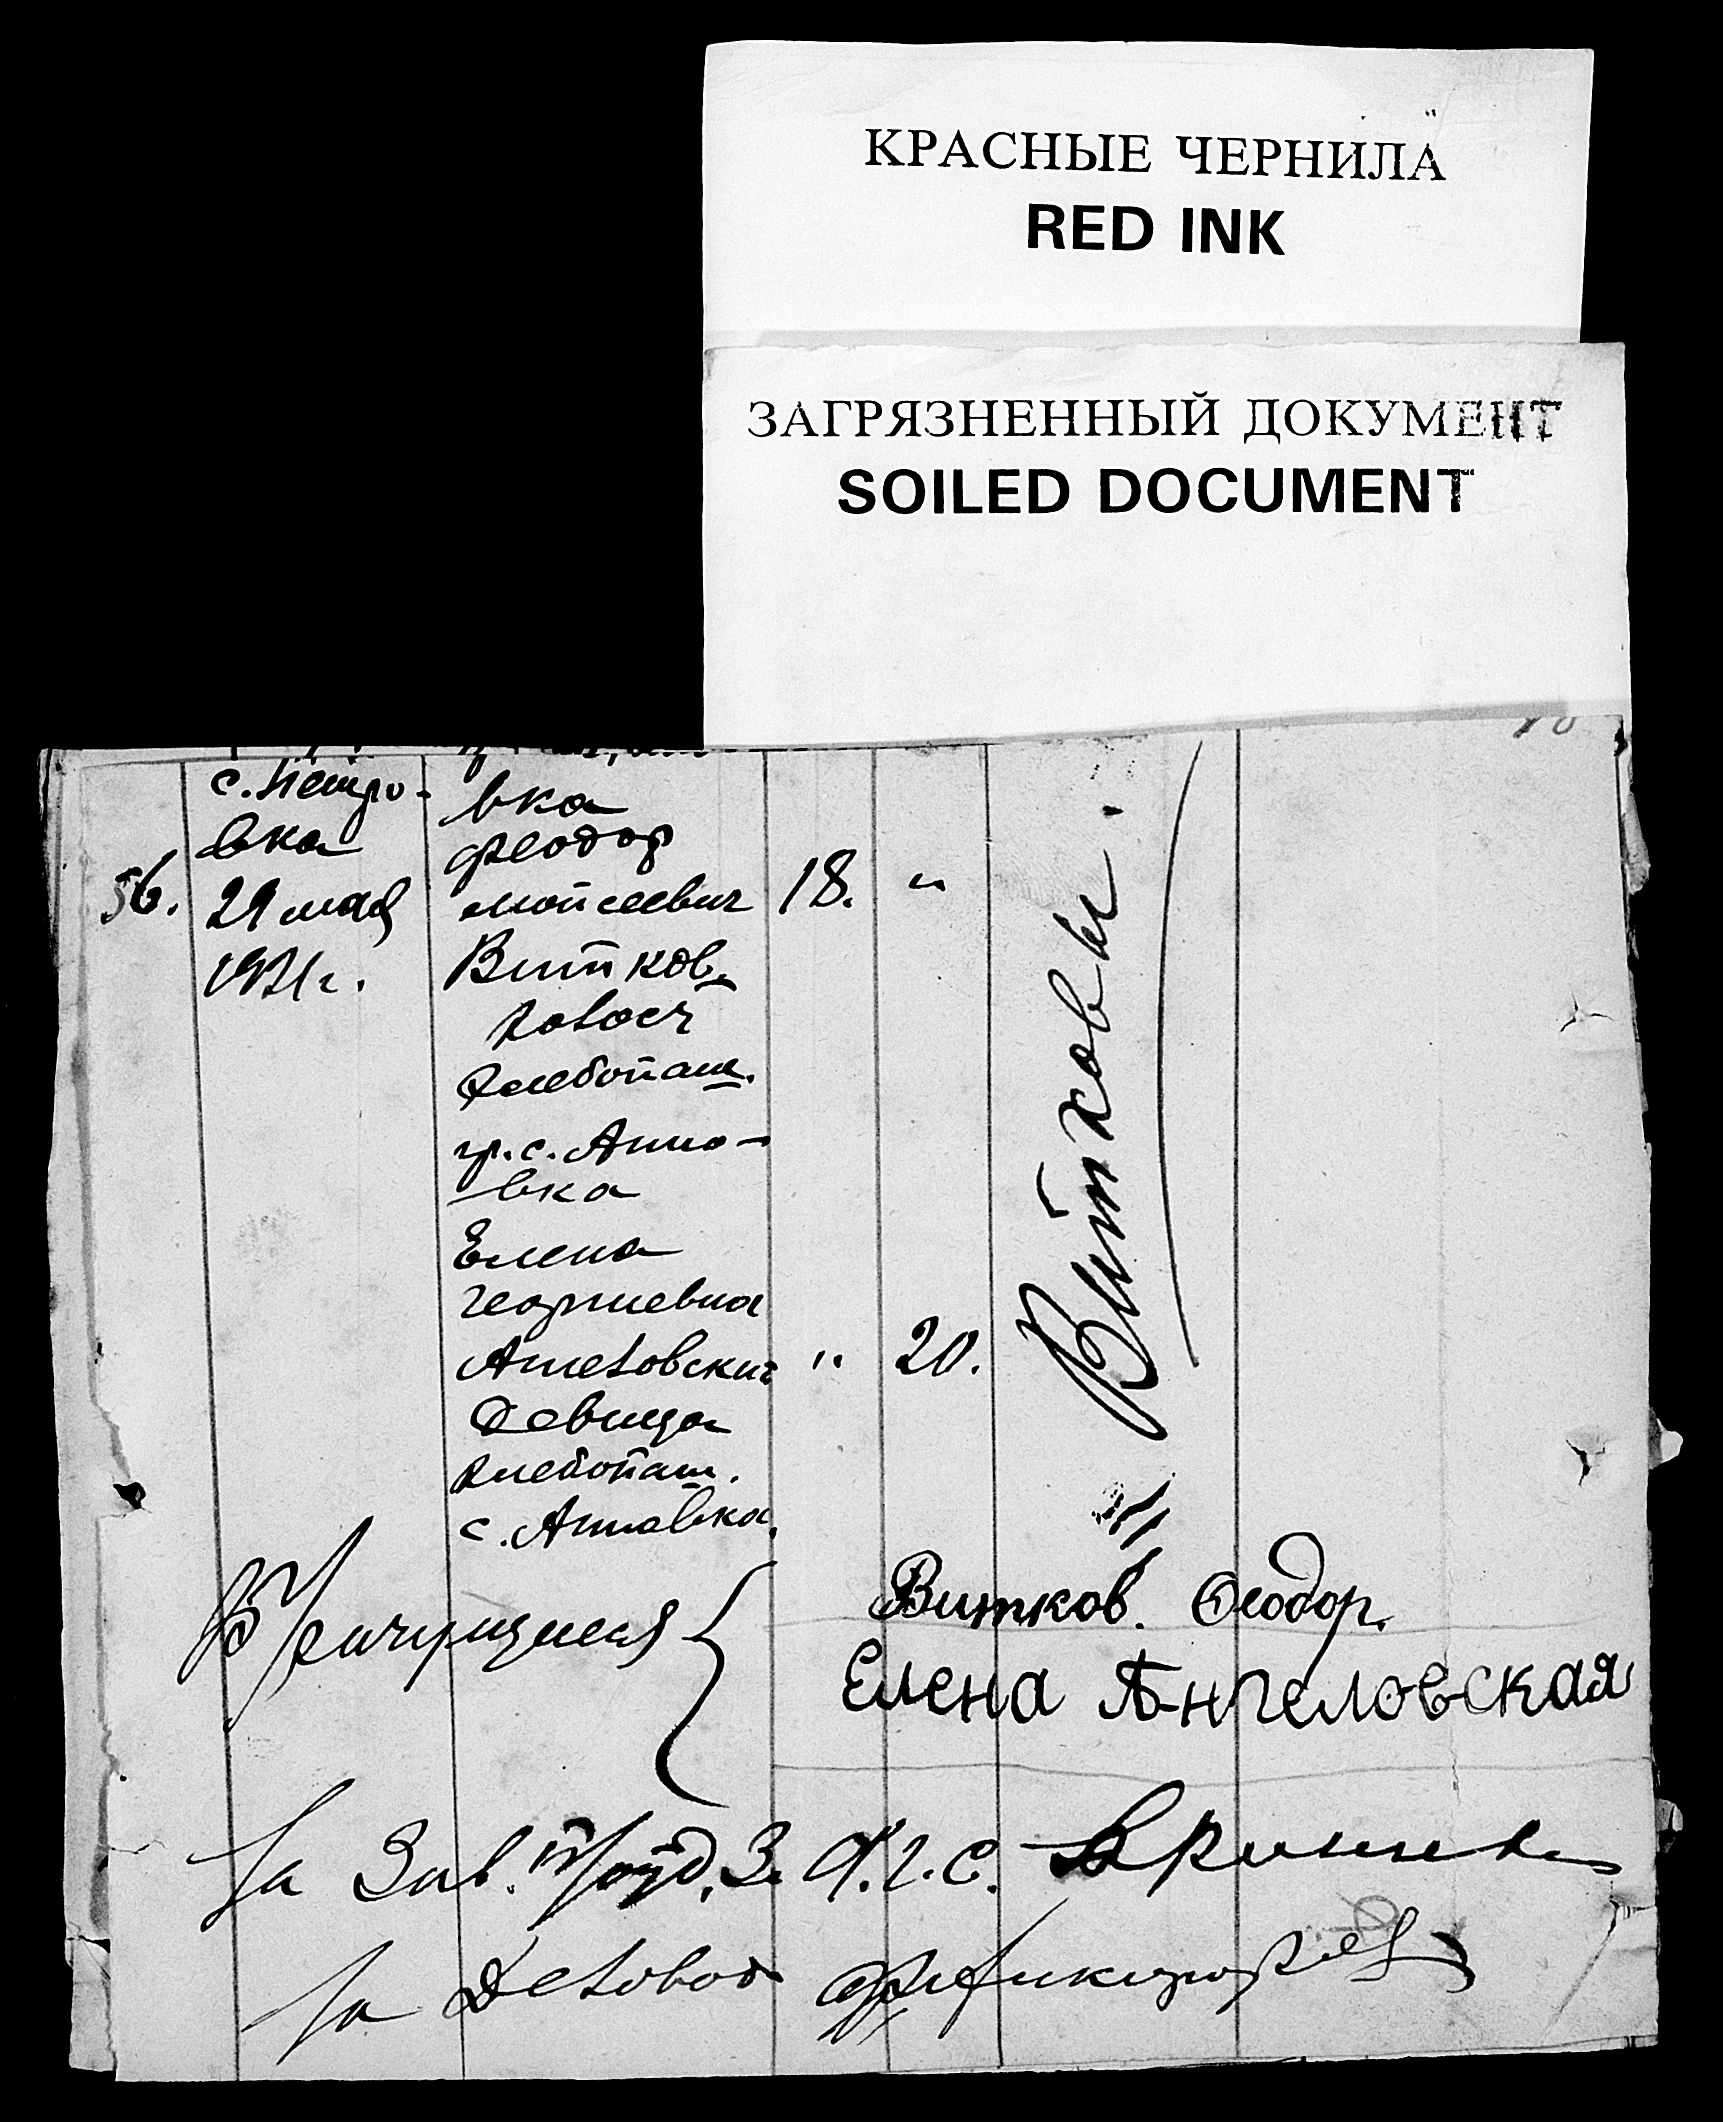 КРАСНЫЕ ЧЕРНИЛА
RED INK
ЗАГРЯЗНЕННЫЙ ДОКУМЕНТ
SOILED DOCUMENT
с. Петро-
вка
56.
29 мая
1921 г.
вка
Феодор
Мойсеевич
Витков
холост
хлебопаш.
гр. с. Анно-
вка
18. "
Елена
Георгиевна
Ангеловский
Девица
хлебопаш.
с. Анновка.
" 20.
Витковы.
Брачущиеся
Витков. Феодор.
Елена Ангеловская
За Зав.
За Деловод